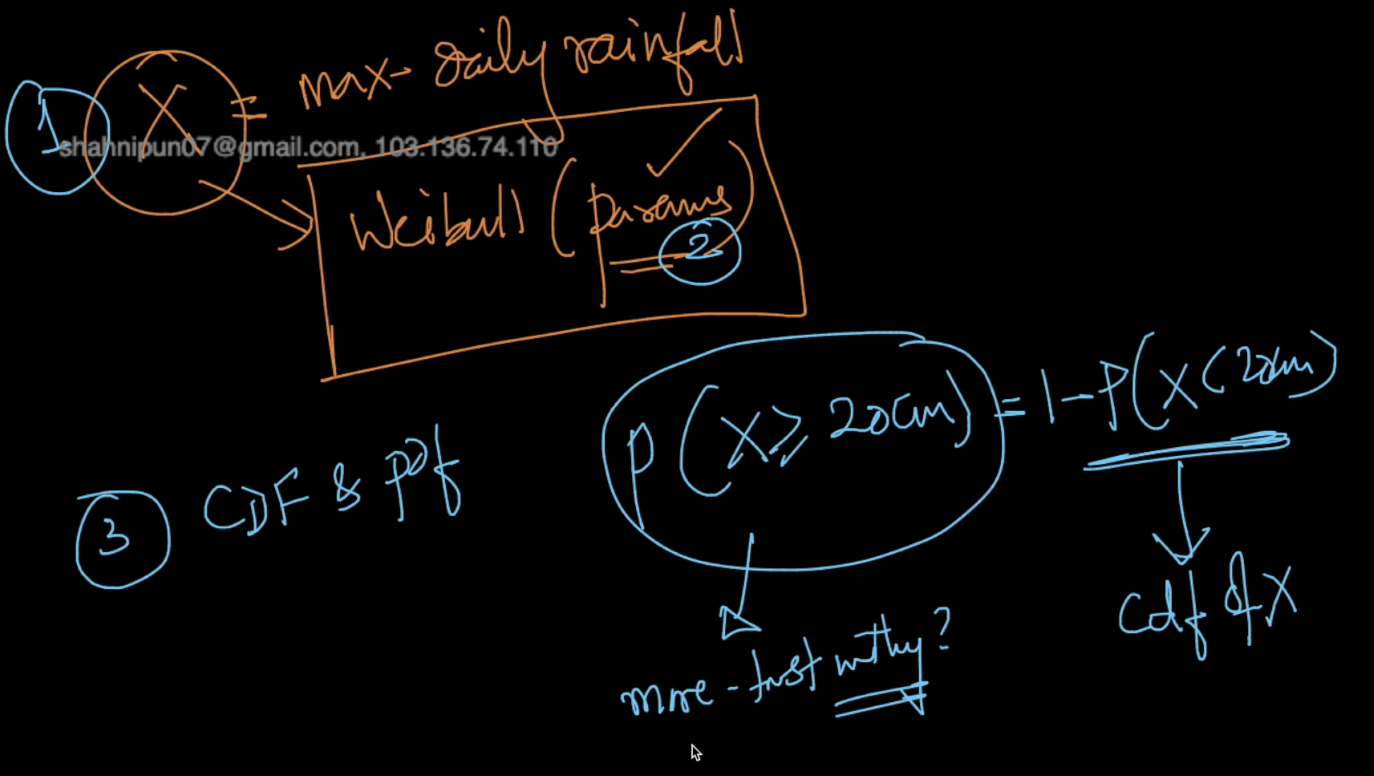 1 X = max- daily rainfall
shahnipun07@gmail.com, 103.136.74.110
Weibull (params)
2
P(X ≥ 20cm) = 1-P(X < 20cm)
3 CDF & pdf
cdf of X
more-trust worthy?